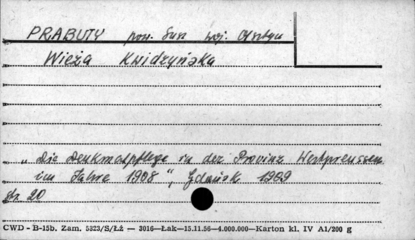 PRABUTY pow. Susz woj. Olsztyn
Wieża Kwidzyńska
„Die Denkmalpflege in der Provinz Westpreussen
im Jahre 1908", Gdańsk 1909
str. 20
CWD - B-15b. Zam. 5323/S/Łż — 2016—Łak—15.11.56—4.000.000—Karton kl. IV A1/200 g